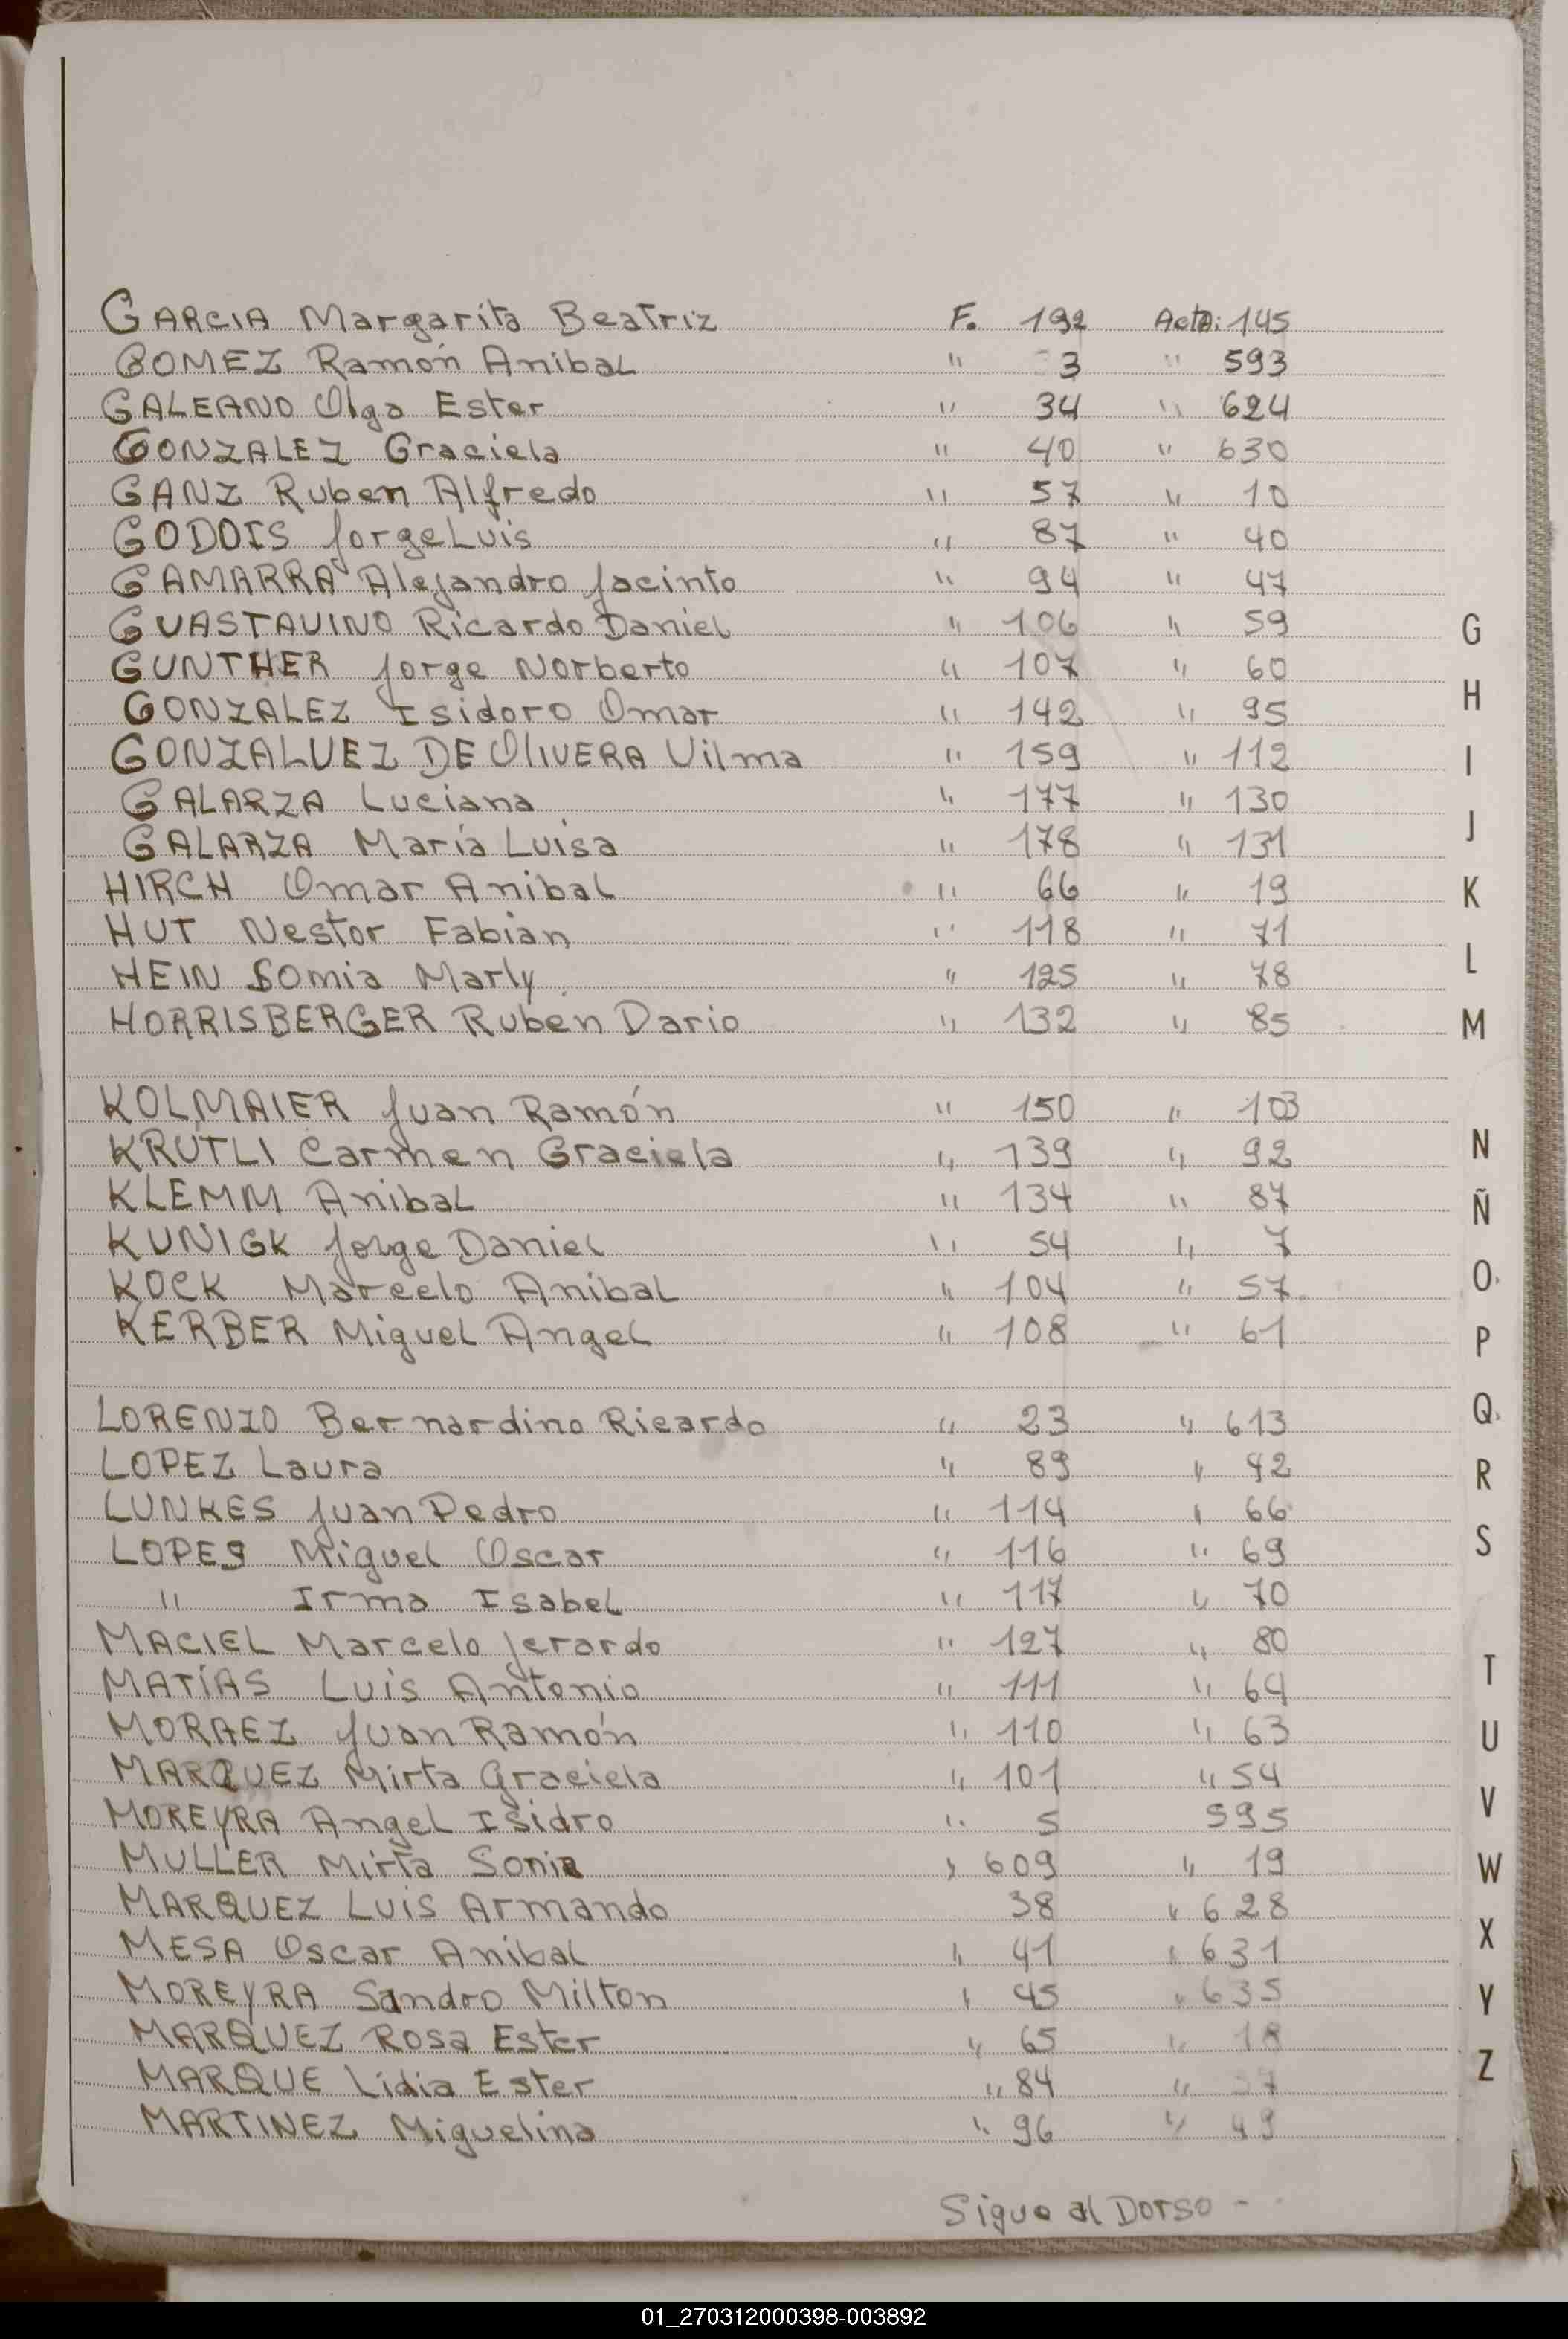 GARCIA Margarita Beatriz F. 192 Acta: 145
GOMEZ Ramón Anibal " 3 " 593
GALEANO Olga Ester " 34 " 624
GONZALEZ Graciela " 40 " 630
GANZ Ruben Alfredo " 57 " 10
GODOIS Jorge Luis " 87 " 40
GAMARRA Alejandro Jacinto " 94 " 47
GUASTAVINO Ricardo Daniel " 106 " 59
GUNTHER Jorge Norberto " 107 " 60
GONZALEZ Isidoro Omar " 142 " 95
GONZALUEZ DE OlIVERA Vilma " 159 " 112
GALARZA Luciana " 177 " 130
GALARZA María Luisa " 178 " 131
HIRCH Omar Anibal " 66 " 19
HUT Nestor Fabian " 118 " 71
HEIN Somia Marly " 125 " 78
HORRISBERGER Ruben Dario " 132 " 85
KOLMAIER Juan Ramón " 150 " 103
KRUTLI Carmen Graciela " 139 " 92
KLEMM Anibal " 134 " 87
KUNIGK Jorge Daniel " 54 " 7
KOCK Marcelo Anibal " 104 " 57
KERBER Miguel Angel " 108 " 61
LORENZO Bernardino Ricardo " 23 " 613
LOPEZ Laura " 89 " 42
LUNKES Juan Pedro " 114 " 66
LOPES Miguel Oscar " 116 " 69
" Irma Isabel " 117 " 70
MACIEL Marcelo Jerardo " 127 " 80
MATÍAS Luis Antonio " 111 " 64
MORAEZ Juan Ramón " 110 " 63
MARQUEZ Mirta Graciela " 101 " 54
MOREYRA Angel Isidro " 5 595
MULLER Mirta Sonia " 609 " 19
MARQUEZ Luis Armando 38 " 628
MESA Oscar Anibal " 41 " 631
MOREYRA Sandro Milton " 45 " 635
MARQUEZ Rosa Ester " 65 " 18
MARQUE Lidia Ester " 84 "
MARTINEZ Miguelina " 96 " 49
Sigue al Dorso -
G
H
I
J
K
L
M
N
Ñ
O
P
Q
R
S
T
U
V
W
X
Y
Z
01_270312000398-003892